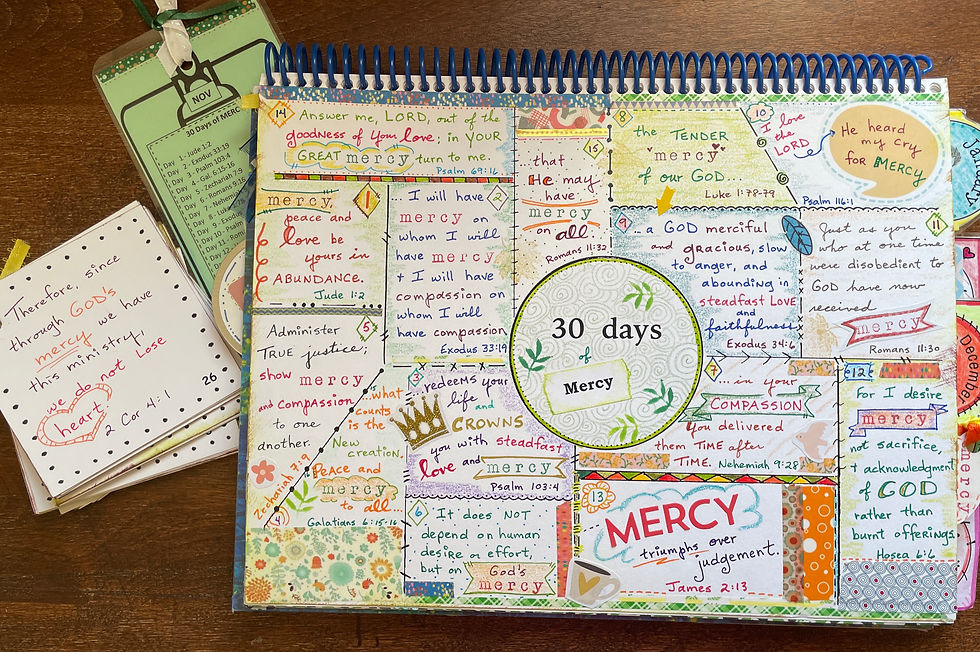 NOV
30 Days of MERC
Day 1- Jude 1:2
Day 2 - Exodus 33:19
Day 3 - Psalm 103:4
Day 4 - Gal. 6:15-16
Day 5 - Zechariah 7:9
Day 6 - Romans 9:16
Day 7 - Nehemi
Day 8 - Luke
Day 9 - Exodus
Day 10 - Psalm
Day 11 - Roman
Therefore, since
through GOD's
mercy we have
this ministry,
we do not Lose
heart.
26
2 Cor 4:1
14
Answer me, LORD, out of the
goodness of Your love; in YOUR
GREAT mercy turn to me.
Psalm 69:16
15
...that
He may
have
mercy
on all.
Romans 11:32
8
the TENDER
mercy
of our GOD...
Luke 1:78-79
10
I love
the
LORD
He heard
my cry
for MERCY
Psalm 116:1
1
mercy,
peace and
love be
yours in
ABUNDANCE.
Jude 1:2
2
... I will have
mercy on
whom I will
have mercy
+ I will have
compassion on
whom I will
have compassion
Exodus 33:19
9
...a GOD merciful
and gracious, slow
to anger, and
abounding in
steadfast LOVE
and
faithfulness
Exodus 34:6
11
Just as you
who at one time
were disobedient to
GOD have now
received
mercy
Romans 11:30
30 days
of
Mercy
5
Administer
TRUE justice;
show mercy
and compassion
to one
another.
Zechariah 7:9
4
...what
counts
is the
New
creation.
PEACE and
mercy
to all
Galatians 6:15-16
3
...redeems your
life and
CROWNS
you with steadfast
love and mercy
Psalm 103:4
7
...in your
COMPASSION
you delivered
them TIME after
TIME. Nehemiah 9:28
12
For I desire
mercy
not sacrifice,
+ acknowledgment
of GOD
rather than
burnt offerings.
Hosea 6:6
6
It does NOT
depend on human
desire or effort,
but on God's
mercy
13
MERCY
triumphs over
judgement.
James 2:13
December